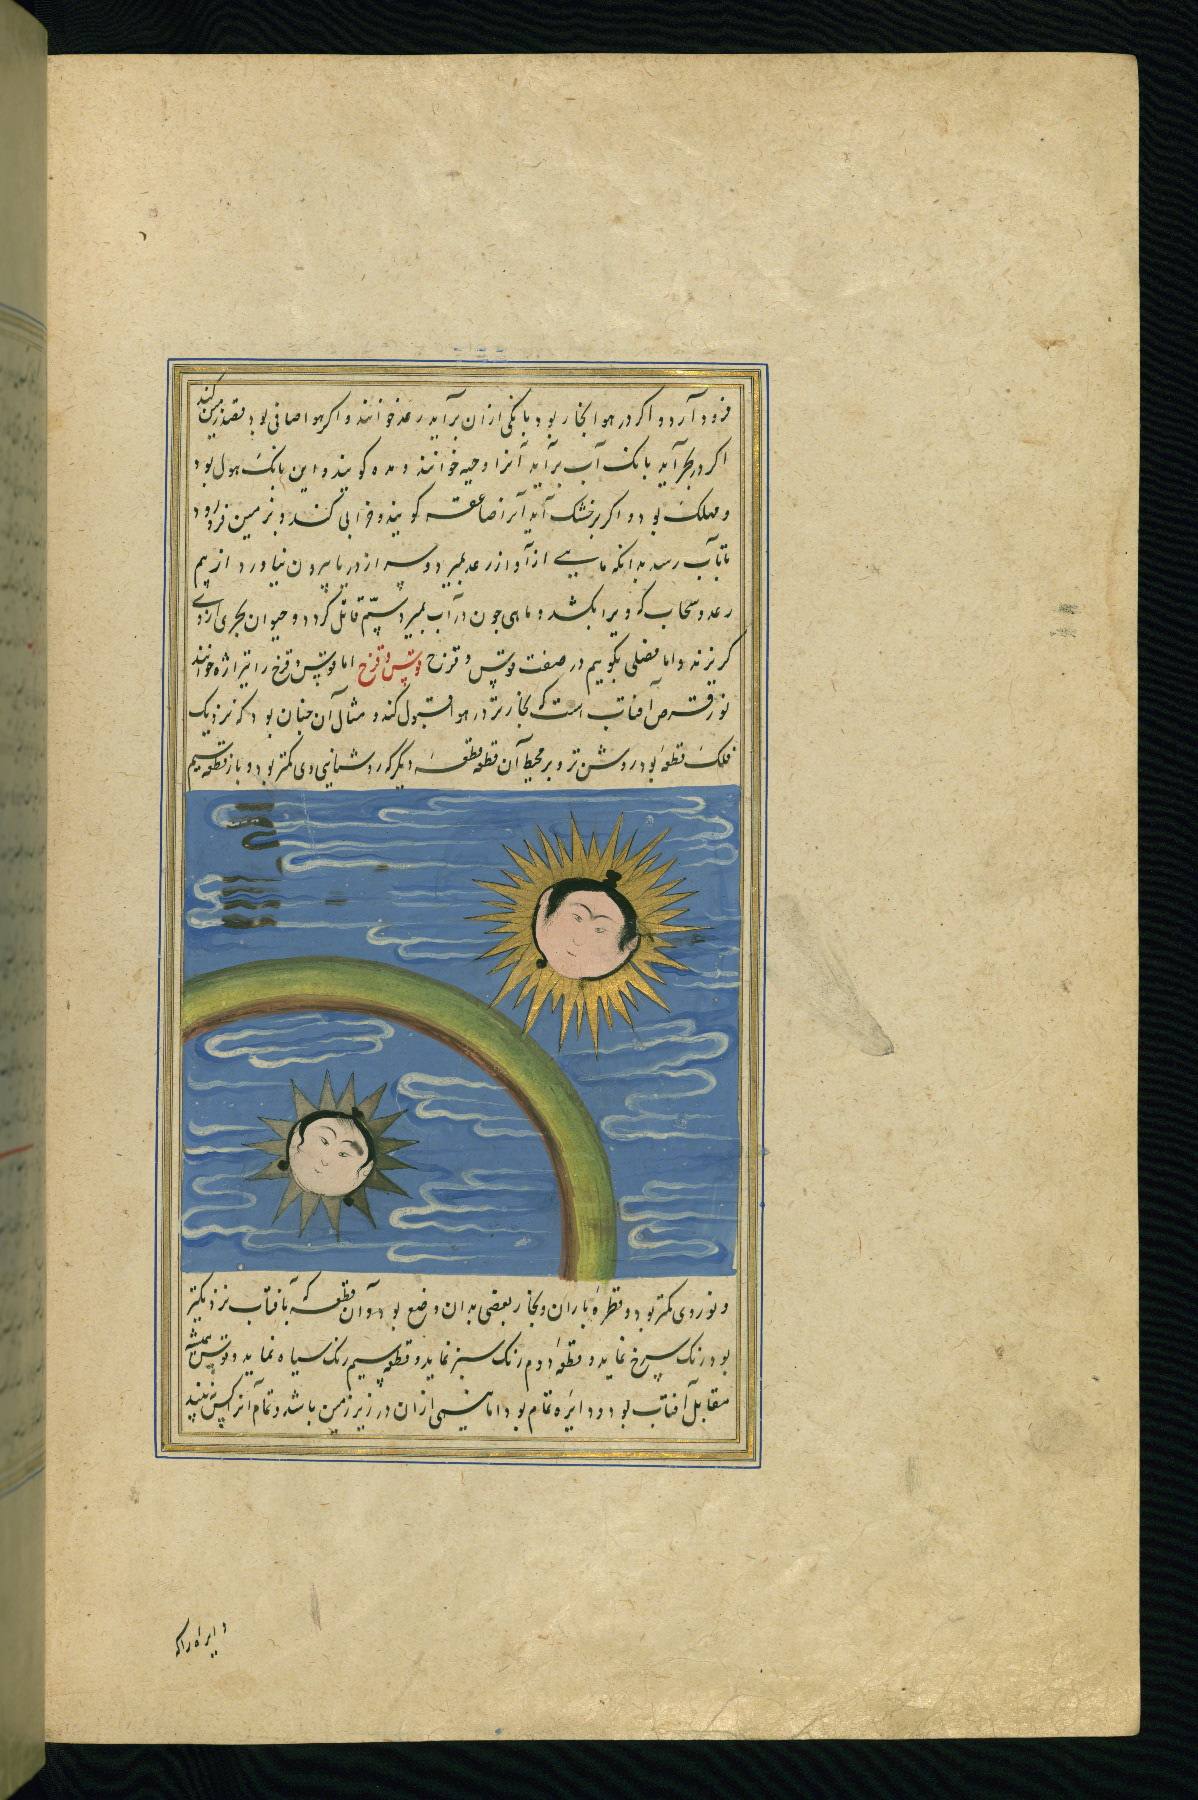 فرود آرد و اکر در هوا بخار بود بانکی ازان برآید رعد خوانند و اکر هوا صافی بود قصد زمین کند
اکر در بحر آید بانک آب برآید آنرا وحیه خوانند و مده کویند و این بانک هول بود
و مهلک بود و اکر برخشک آید آنرا صاعقه کویند و خرابی کند و بزمین فرو رود
تا بآب رسد بدانکه ماهیی از آواز رعد بمیرد و سر از دریا بیرون نیاورد از بیم
رعد و سحاب که ویرا بکشد و ماهی چون در آب بمیرد سمّ قاتل کردد و حیوان بحری از وی
کریزند و اما فصلی بکوییم در صفت قوس و قزح قوس و قزح اما قوس و قزح را تیراژه خوانند
نور قرص آفتاب است که بخار تر در هوا قبول کند و مثال آن چنان بود که نزدیک
فلک قطعهٔ بود روشن تر و بر محیط آن قطعه قطعهٔ دیکر که روشنایی وی کمتر بود و باز قطعه سیم
و نور وی کمتر بود و قطرهٔ باران و بخار بعضی بدان وضع بود و آن قطعه که بآفتاب نزدیکتر
بود رنک سرخ نماید و قطعهٔ دوم رنک سبز نماید و قطعه سیم رنک سیاه نماید و قوس همیشه
مقابل آفتاب بود و دایره تمام بود اما نیمی ازان در زیر زمین باشد و تمام آنرا کس نبیند
دایره راکه